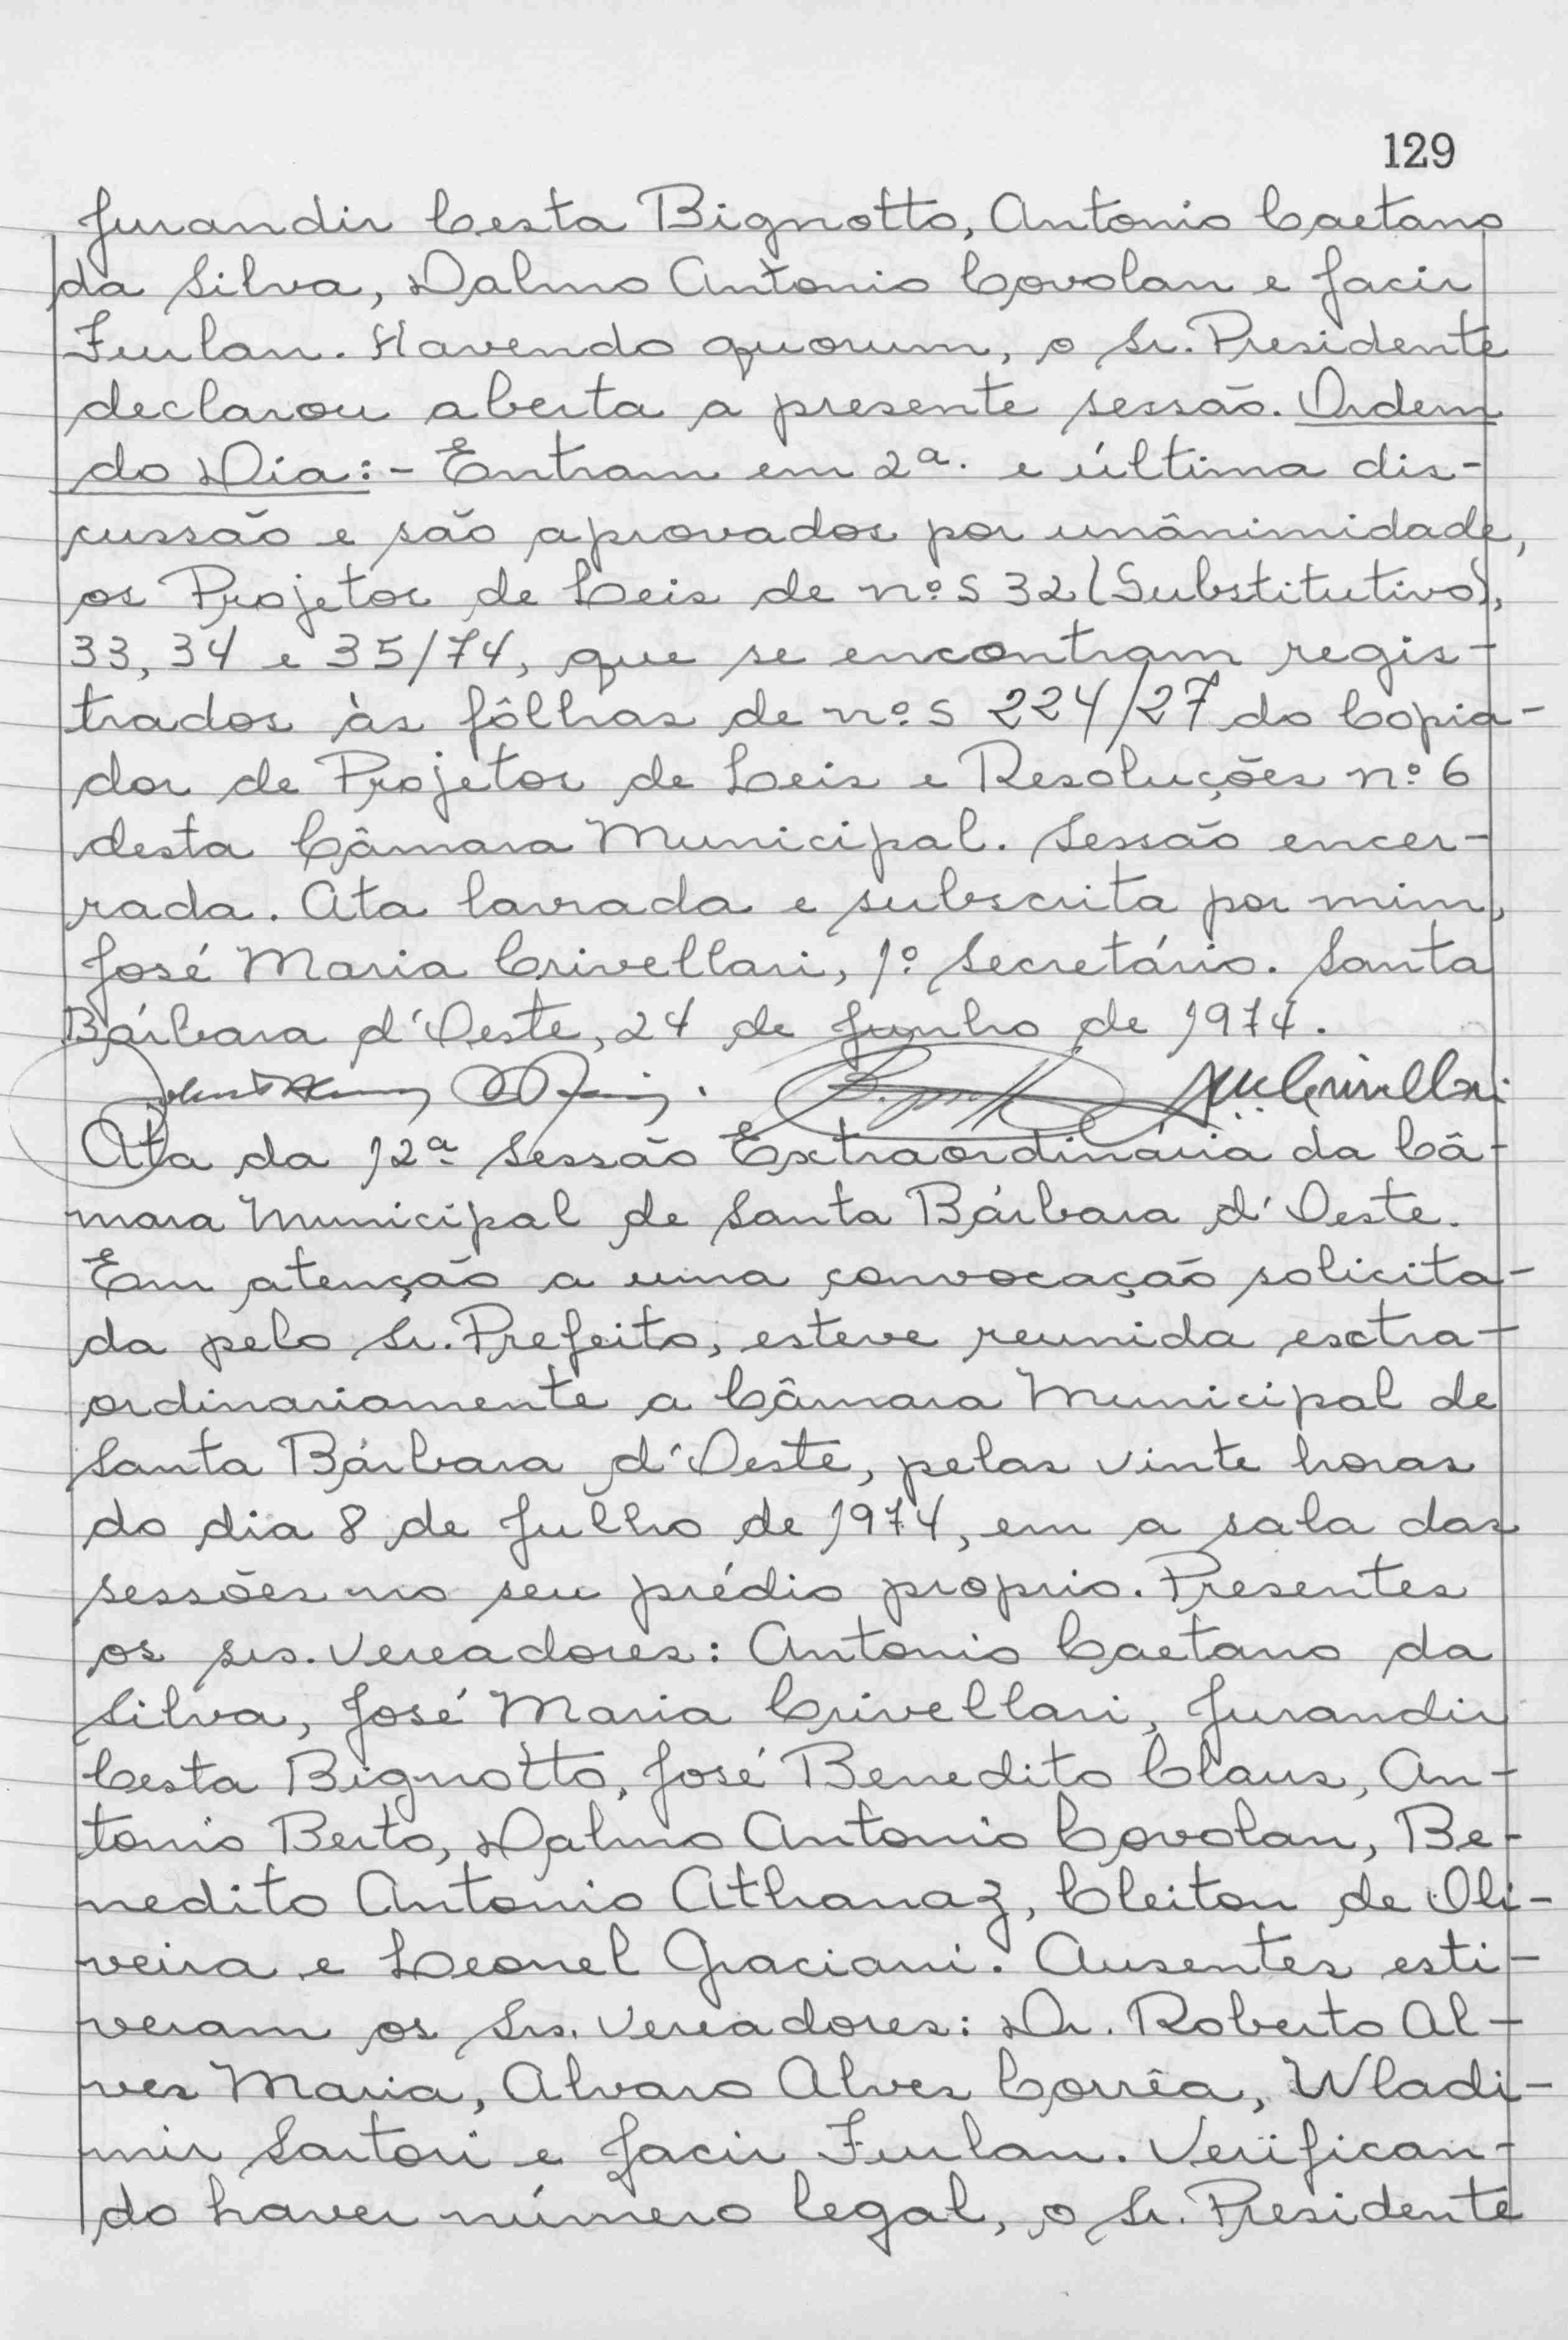 129
Jurandir Cesta Bignotto, Antonio Caetano
da Silva, Dalmo Antonio Covolan e Jacir
Furlan. Havendo quorum, o Sr. Presidente
declarou aberta a presente sessão. Ordem
do Dia:- Entram em 2ª. e última dis-
cussão e são aprovados por unânimidade,
os Projetos de Leis de nºs 32 (Substitutivo),
33, 34 e 35/74, que se encontram regis-
trados às fôlhas de nºs 224/27 do Copia-
dor de Projetos de Leis e Resoluções nº 6
desta Câmara Municipal. Sessão encer-
rada. Ata lavrada e subscrita por mim,
José Maria Crivellari, 1º Secretário. Santa
Bárbara d'Oeste, 24 de Junho de 1974.
Crivellari
Ata da 12ª Sessão Extraordinária da Câ-
mara Municipal de Santa Bárbara d'Oeste.
Em atenção a uma convocação solicita-
da pelo Sr. Prefeito, esteve reunida extra-
ordinariamente a Câmara Municipal de
Santa Bárbara d'Oeste, pelas vinte horas
do dia 8 de Julho de 1974, em a sala das
sessões no seu prédio proprio. Presentes
os srs. Vereadores: Antonio Caetano da
Silva, José Maria Crivellari, Jurandir
Cesta Bignotto, José Benedito Claus, An-
tonio Berto, Dalmo Antonio Covolan, Be-
nedito Antonio Athanaz, Cleiton de Oli-
veira e Leonel Graciani. Ausentes esti-
veram os Srs. Vereadores: Dr. Roberto Al-
ves Maria, Alvaro Alves Corrêa, Wladi-
mir Sartori e Jacir Furlan. Verifican-
do haver número legal, o Sr. Presidente